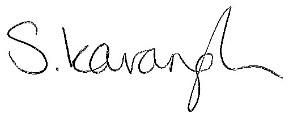 S. Kavanagh